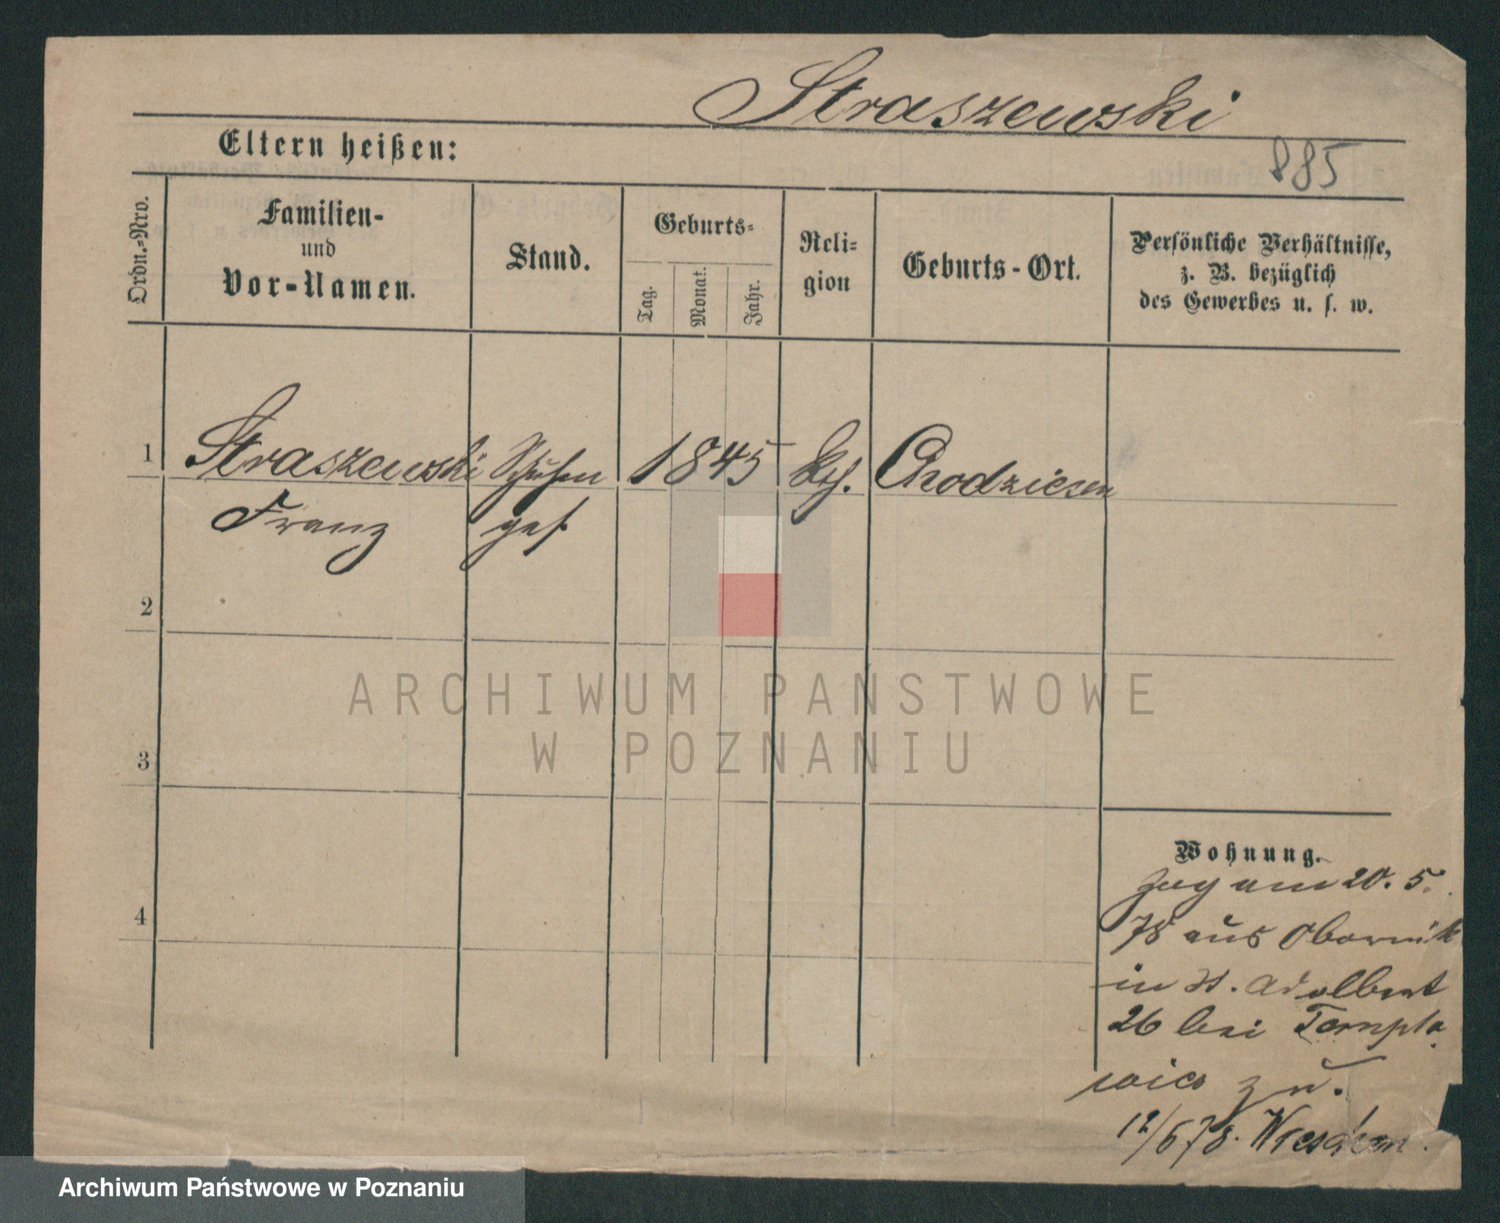 Straszewski
885
Eltern heißen:
Ordn.-Nro.
Familien-
und
Vor-Namen.
Stand.
Geburts-
Tag.
Monat.
Jahr.
Reli-
gion
Geburts-Ort.
Persönliche Verhältnisse,
z. B. bezüglich
des Gewerbes u. s. w.
1
Straszewski
Franz
Schuhm
ges.
1845
Chodziesen
2
3
4
Wohnung.
zog am 20. 5.
78 aus Obornik
in St. Adalbert
26 bei
zu.
12/6 78. Wreschen.
ARCHIWUM PAŃSTWOWE
W POZNANIU
Archiwum Państwowe w Poznaniu